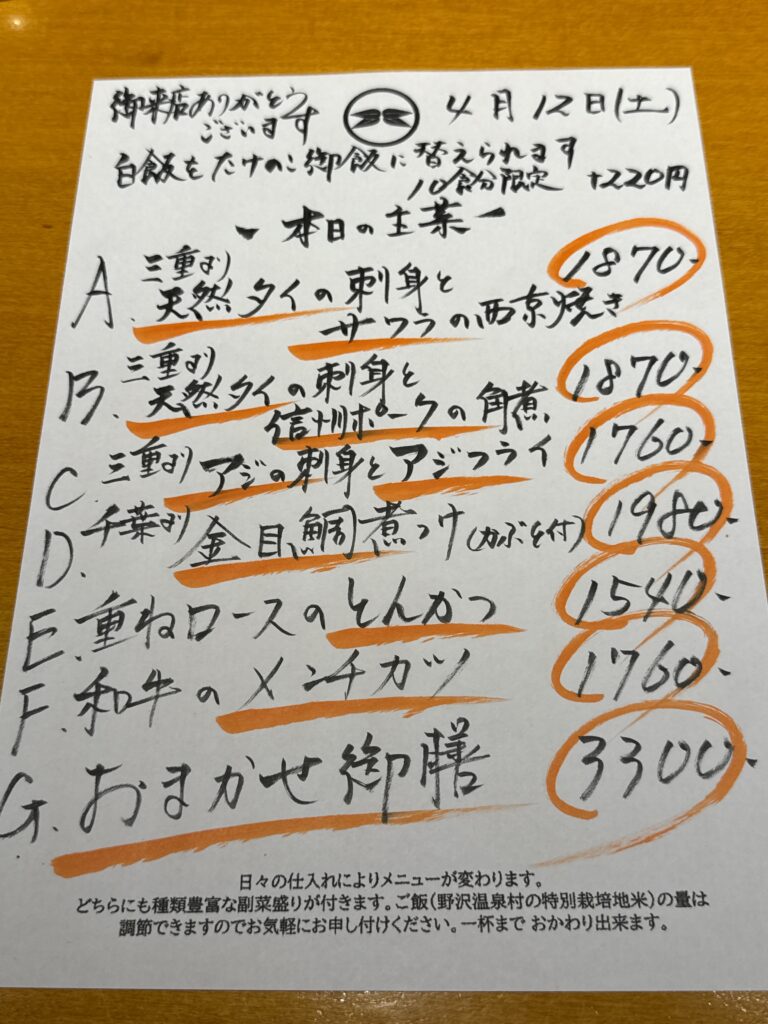 御来店ありがとう
ございます
4月12日(土)
白飯をたけのこ御飯に替えられます
10食分限定 +220円
- 本日の主菜 -
A. 三重より
天然タイの刺身と
サワラの西京焼き 1870-
B. 三重より
天然タイの刺身と
信州ポークの角煮 1870-
C. 三重より アジの刺身とアジフライ 1760-
D. 千葉より 金目鯛煮つけ(かぶと付) 1980-
E. 重ねロースのとんかつ 1540-
F. 和牛のメンチカツ 1760-
G. おまかせ御膳 3300-
日々の仕入れによりメニューが変わります。
どちらにも種類豊富な副菜盛りが付きます。ご飯(野沢温泉村の特別栽培地米)の量は
調節できますのでお気軽にお申し付けください。一杯まで おかわり出来ます。